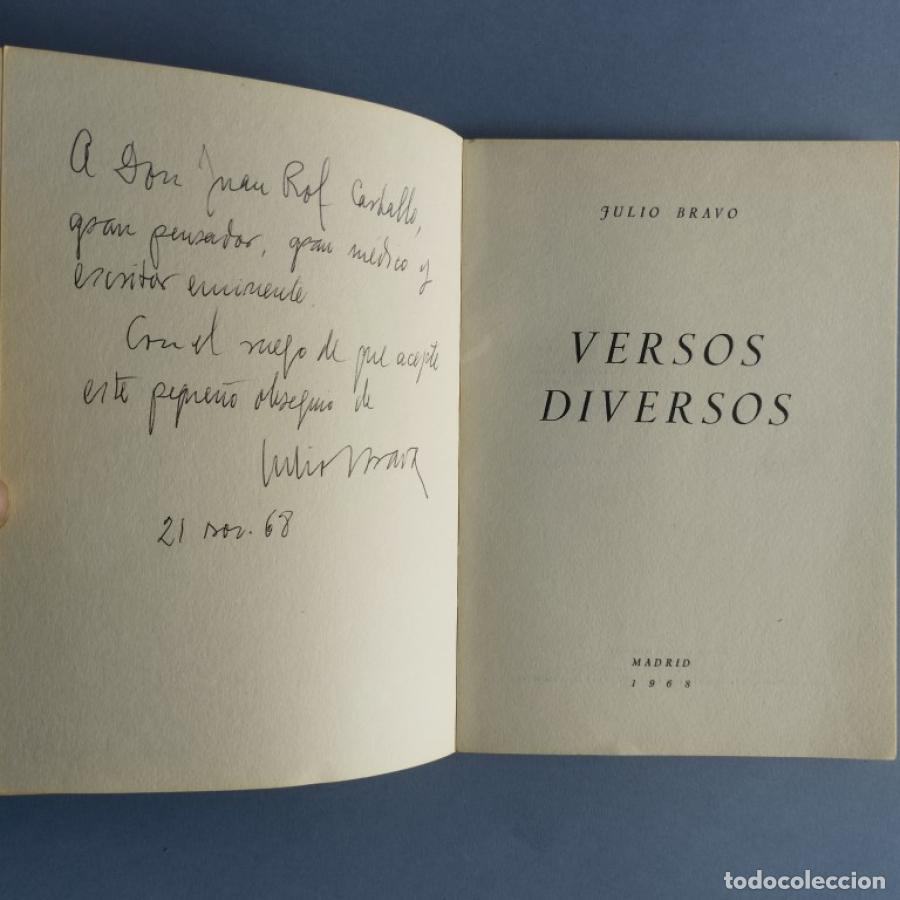 A Don Juan Rof Carballo,
gran pensador, gran médico y
escritor eminente.
Con el ruego de que acepte
este pequeño obsequio de
Julio Bravo
21 nov. 68
JULIO BRAVO
VERSOS
DIVERSOS
MADRID
1968
todocoleccion